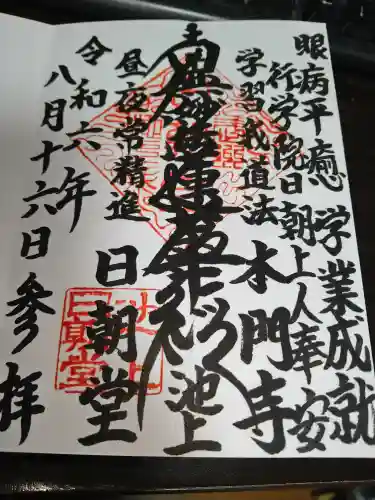 眼病平癒 学業成就
行学院日朝上人奉安
学習我直法 本門寺
南無妙法蓮華経 池上
昼夜常精進 日朝堂
令和六年
八月十六日参拝
池上
日朝堂